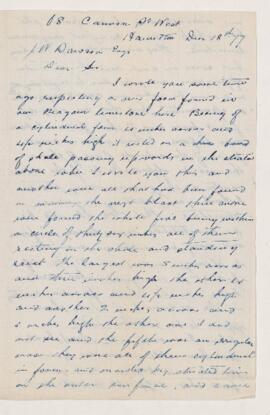 08 Cannon St West
Hamilton Dec 18th 79
J W Dawson Esq
Dear Sir
I wrote you some time
ago respecting a new form found in
our Niagara limestone here Being of
a cylindrical form inches across and
inches high it rested on a thin band
of shale passing upwards in the strata
above when I wrote you this and
another were all that had been found
in the next blast three more
were found the whole five being within
a circle of thirty six inches all of them
resting on the shale and standing
erect The largest was 5 inches across
and inches high the other 4
inches across and inches high
and another 2 inches across and
inches high the other one I did
not see and the fifth was an irregular
mass they were all of them cylindrical
in form and marked by striated lines
on the outer surface and